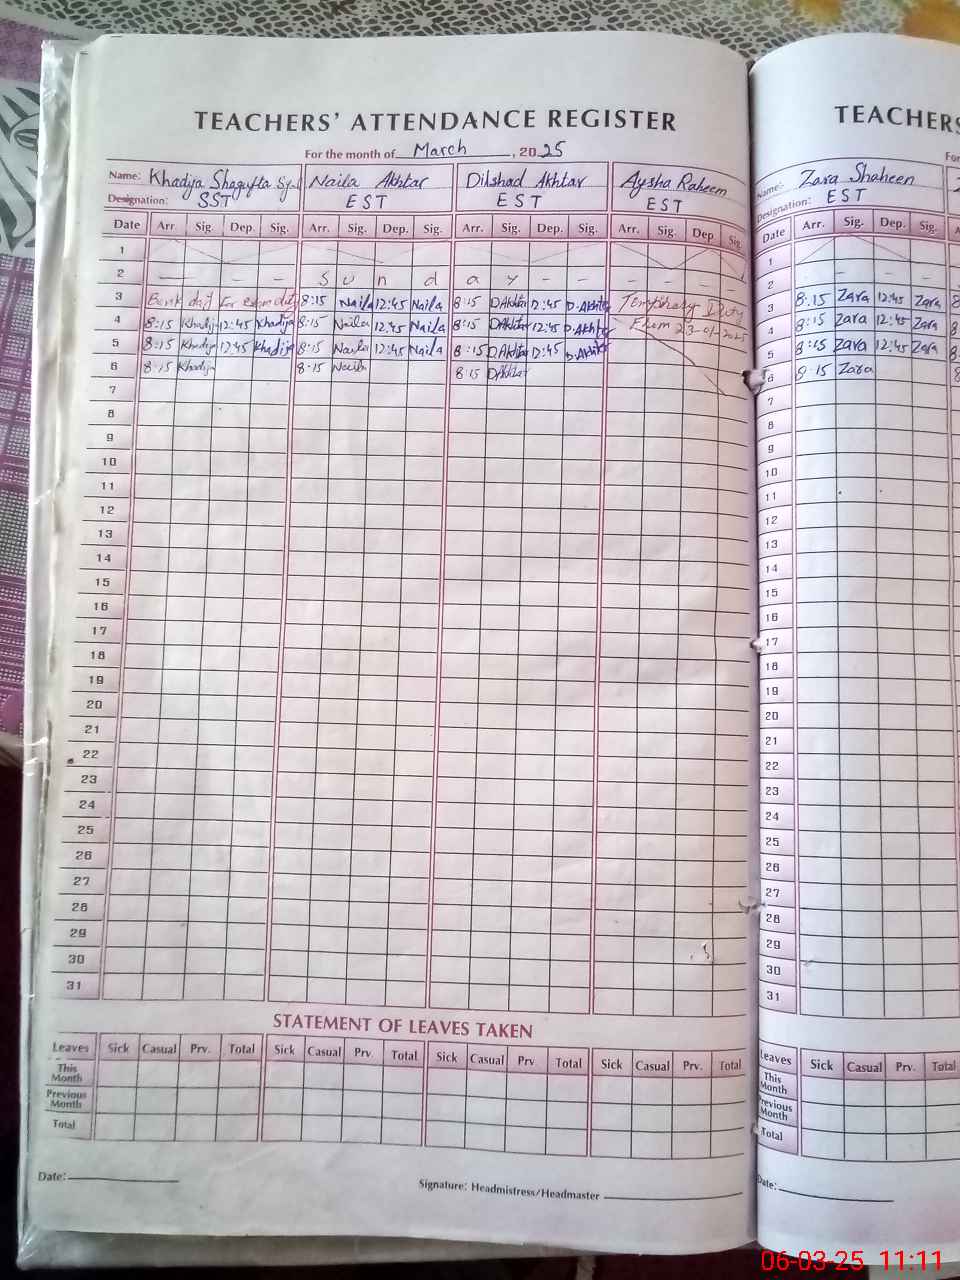 TEACHERS' ATTENDANCE REGISTER
For the month of March, 2025
Name: Khadija Shagufta Naila Akhtar Dilshad Akhtar Aysha Raheem
Designation: SST EST EST EST
Date Arr. Sig. Dep. Sig. Arr. Sig. Dep. Sig. Arr. Sig. Dep. Sig. Arr. Sig. Dep. Sig.
1
2 — - - - S u n d a y - - - - - -
3 Bank day For exam duty 8:15 Naila 12:45 Naila 8:15 D.Akhtar 12:45 D.Akhtar Temporary Duty
4 8:15 Khadija 12:45 Khadija 8:15 Naila 12:45 Naila 8:15 D.Akhtar 12:45 D.Akhtar From 23-01-2025
5 8:15 Khadija 12:45 Khadija 8:15 Naila 12:45 Naila 8:15 D.Akhtar 12:45 D.Akhtar
6 8:15 Khadija 8:15 Naila 8:15 D.Akhtar
7
8
9
10
11
12
13
14
15
16
17
18
19
20
21
22
23
24
25
26
27
28
29
30
31
STATEMENT OF LEAVES TAKEN
Leaves Sick Casual Prv. Total Sick Casual Prv. Total Sick Casual Prv. Total Sick Casual Prv. Total
This Month
Previous Month
Total
Date:
Signature: Headmistress/Headmaster
TEACHERS
For
Name: Zara Shaheen
Designation: EST
Date Arr. Sig. Dep. Sig.
1
2 - - - -
3 8:15 Zara 12:45 Zara 8
4 8:15 Zara 12:45 Zara 8
5 8:15 Zara 12:45 Zara 8
6 8:15 Zara 8
7
8
9
10
11
12
13
14
15
16
17
18
19
20
21
22
23
24
25
26
27
28
29
30
31
Leaves Sick Casual Prv. Total
This Month
Previous Month
Total
Date:
06-03-25 11:11